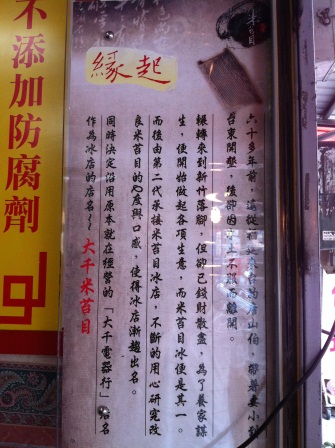 緣起
六十多年前，遠從
台東開墾，後卻因
不服而離開。
輾轉來到新竹落腳，但卻已錢財散盡，為了養家謀
生，便開始做起各項生意，而米苔目冰便是其一。
而後由第二代承接米苔目冰店，不斷的用心研究改
良米苔目的Q度與口感，使得冰店漸趨出名。
同時決定沿用原本就在經營的「大千電器行」店名
作為冰店的店名~大千米苔目
不添加防腐劑